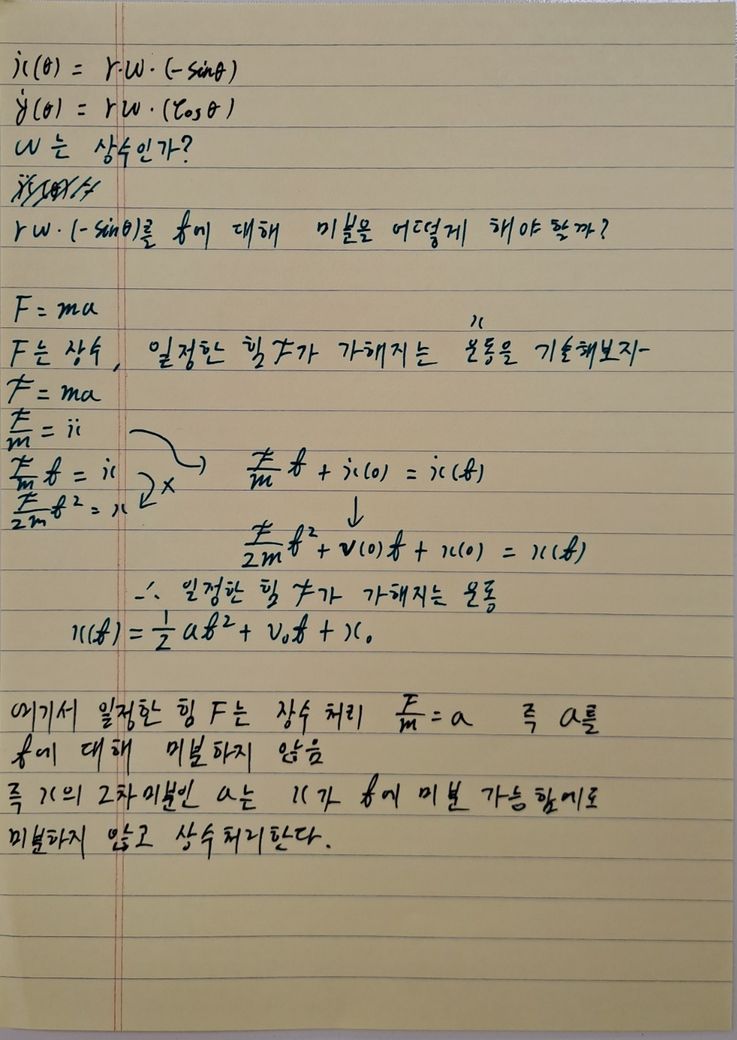 ẋ(θ) = r·w·(-sinθ)
ẏ(θ) = rw·(cosθ)
w는 상수인가?
rw·(-sinθ)를 t에 대해 미분을 어떻게 해야 할까?
F = ma
F는 상수, 일정한 힘 F가 가해지는 운동을 기술해보자
x
F = ma
F/m = ẍ
F/m t = ẋ
F/2m t² = x
x
F/m t + ẋ(0) = ẋ(t)
↓
F/2m t² + v(0)t + x(0) = x(t)
∴ 일정한 힘 F가 가해지는 운동
x(t) = 1/2 at² + v₀t + x₀
여기서 일정한 힘 F는 장수 처리 F/m = a 즉 a를
t에 대해 미분하지 않음
즉 x의 2차미분인 a는 x가 t에 미분 가능함에도
미분하지 않고 상수처리한다.